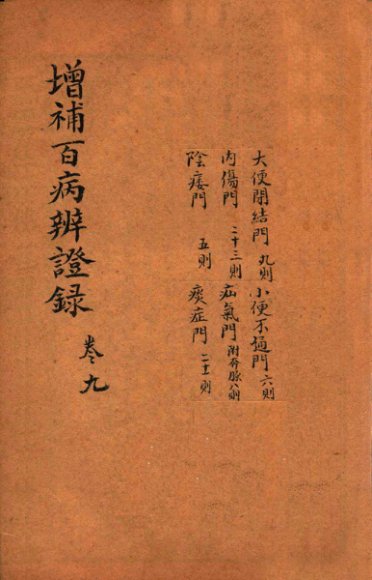 增補百病辨證錄 卷九
大便閉結門 九則 小便不通門 六則
內傷門 二十三則 疝氣門 附奔豚八則
陰痿門 五則 痰症門 二十一則